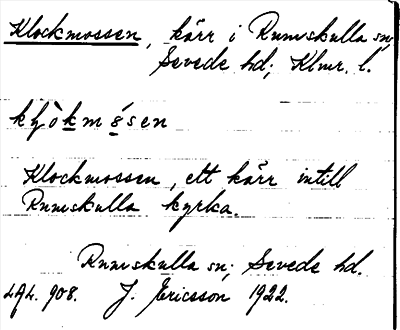 Klockmossen, kärr i Rumskulla sn,
Sevede hd; Klmr. l.
Klockmossen, ett kärr intill
Rumskulla kyrka.
Rumskulla sn; Sevede hd.
LAL. 908. J. Ericsson 1922.